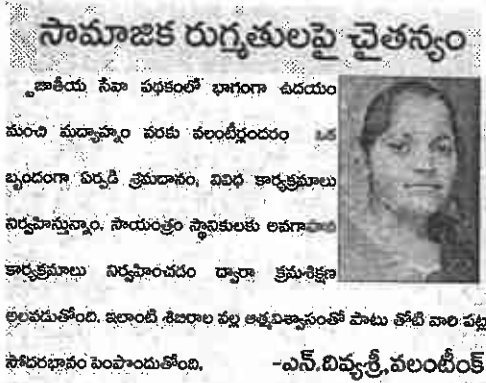 సామాజిక రుగ్మతులపై చైతన్యం
జాతీయ సేవా పథకంలో భాగంగా ఉదయం
మంచి మధ్యాహ్నం వరకు వలంటీర్లందరం ఒక
బృందంగా ఏర్పడి శ్రమదానం, వివిధ కార్యక్రమాలు
నిర్వహిస్తున్నాం. సాయంత్రం స్థానికులకు అవగాహన
కార్యక్రమాలు నిర్వహించడం ద్వారా క్రమశిక్షణ
అలవడుతోంది. ఇలాంటి శిబిరాల వల్ల ఆత్మవిశ్వాసంతో పాటు తోటి వారి పట్ల
సోదరభావం పెంపొందుతోంది. -ఎన్.దివ్యశ్రీ, వలంటీర్